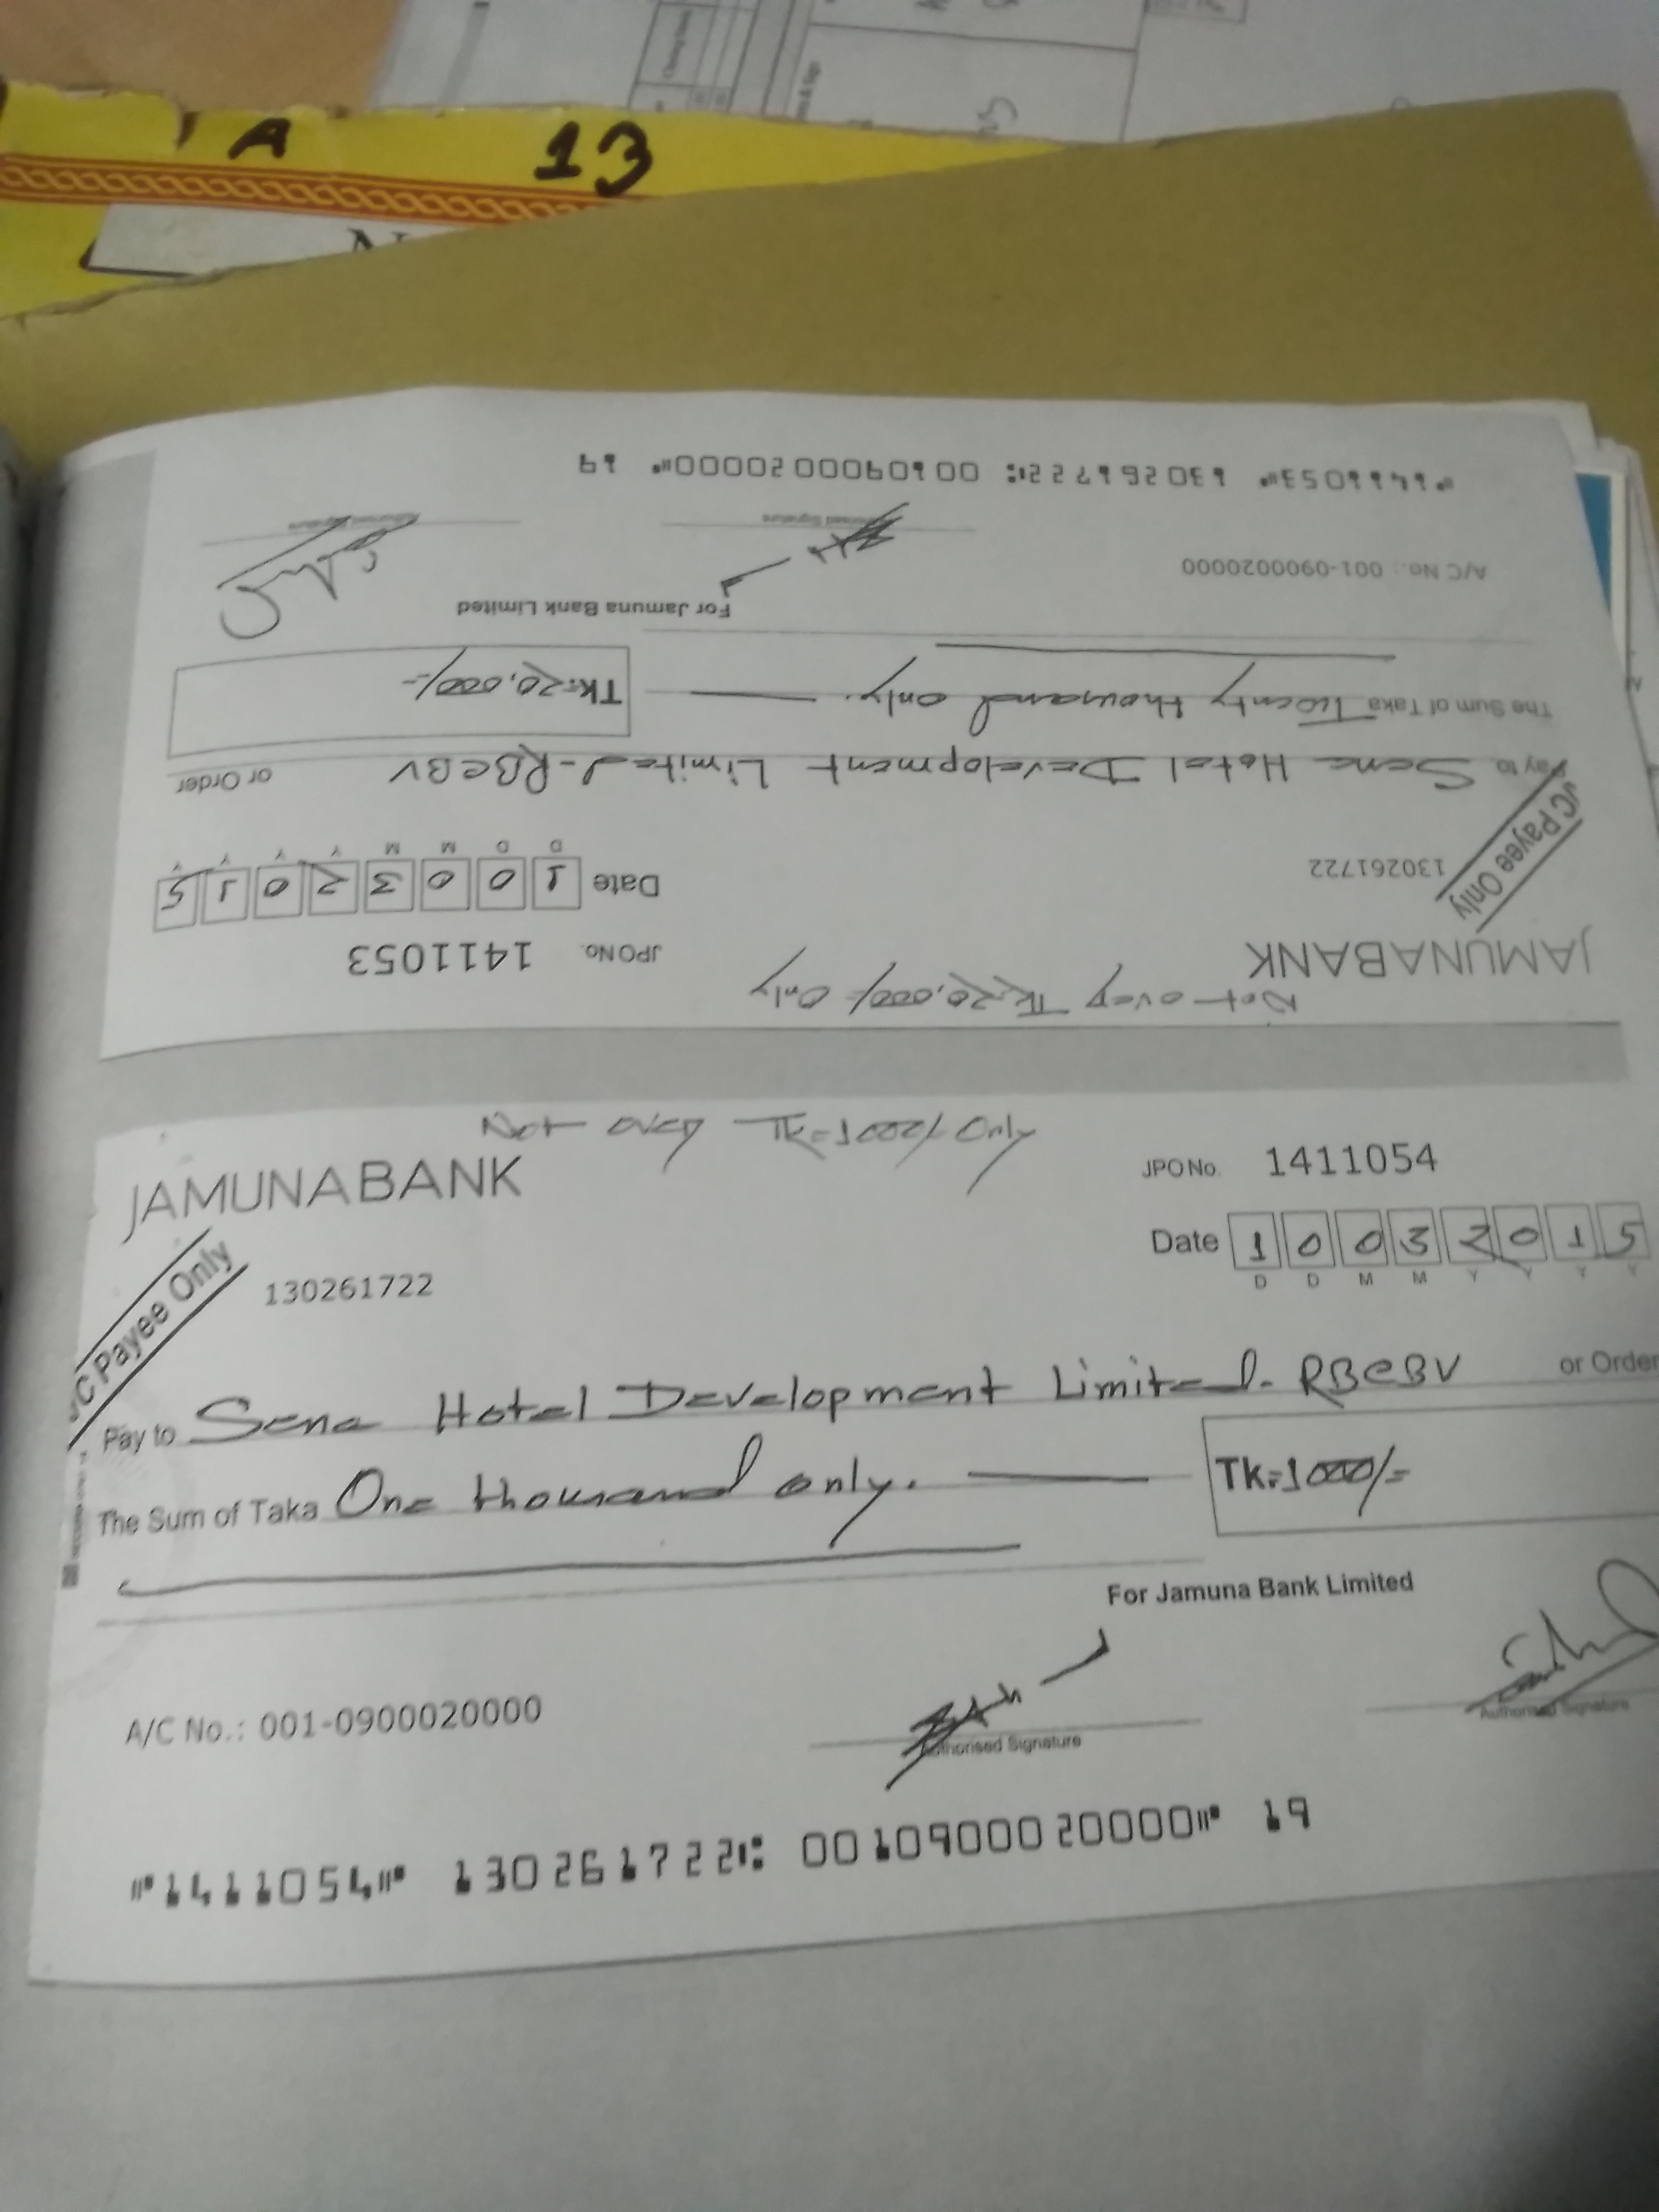 A 13
"1411053" 130261722: 0010900020000" 19
Authorised Signature Authorised Signature
A/C No.: 001-0900020000
For Jamuna Bank Limited
The Sum of Taka Twenty thousand only. Tk=20,000/-
Pay to Sena Hotel Development Limited-RBCBV or Order
A/C Payee Only
130261722
Date 1 0 0 3 2 0 1 5
D D M M Y Y Y Y
JAMUNA BANK
JPO No. 1411053
Not over Tk=20,000/- Only
Not over Tk=1000/- Only
JAMUNA BANK
JPO No. 1411054
Date 1 0 0 3 2 0 1 5
D D M M Y Y Y Y
A/C Payee Only
130261722
Pay to Sena Hotel Development Limited-RBCBV or Order
The Sum of Taka One thousand only. Tk=1000/=
For Jamuna Bank Limited
A/C No.: 001-0900020000
Authorised Signature Authorised Signature
"1411054" 130261722: 0010900020000" 19